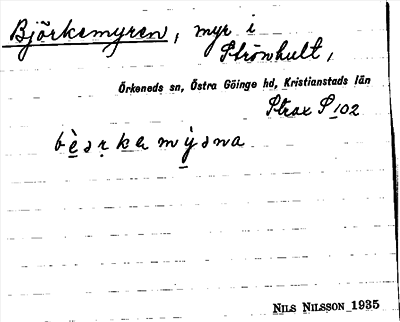 Björkemyren, myr i
Strönhult,
Örkeneds sn, Östra Göinge hd, Kristianstads län
Strax S 102
bèarka mýana
NILS NILSSON 1935